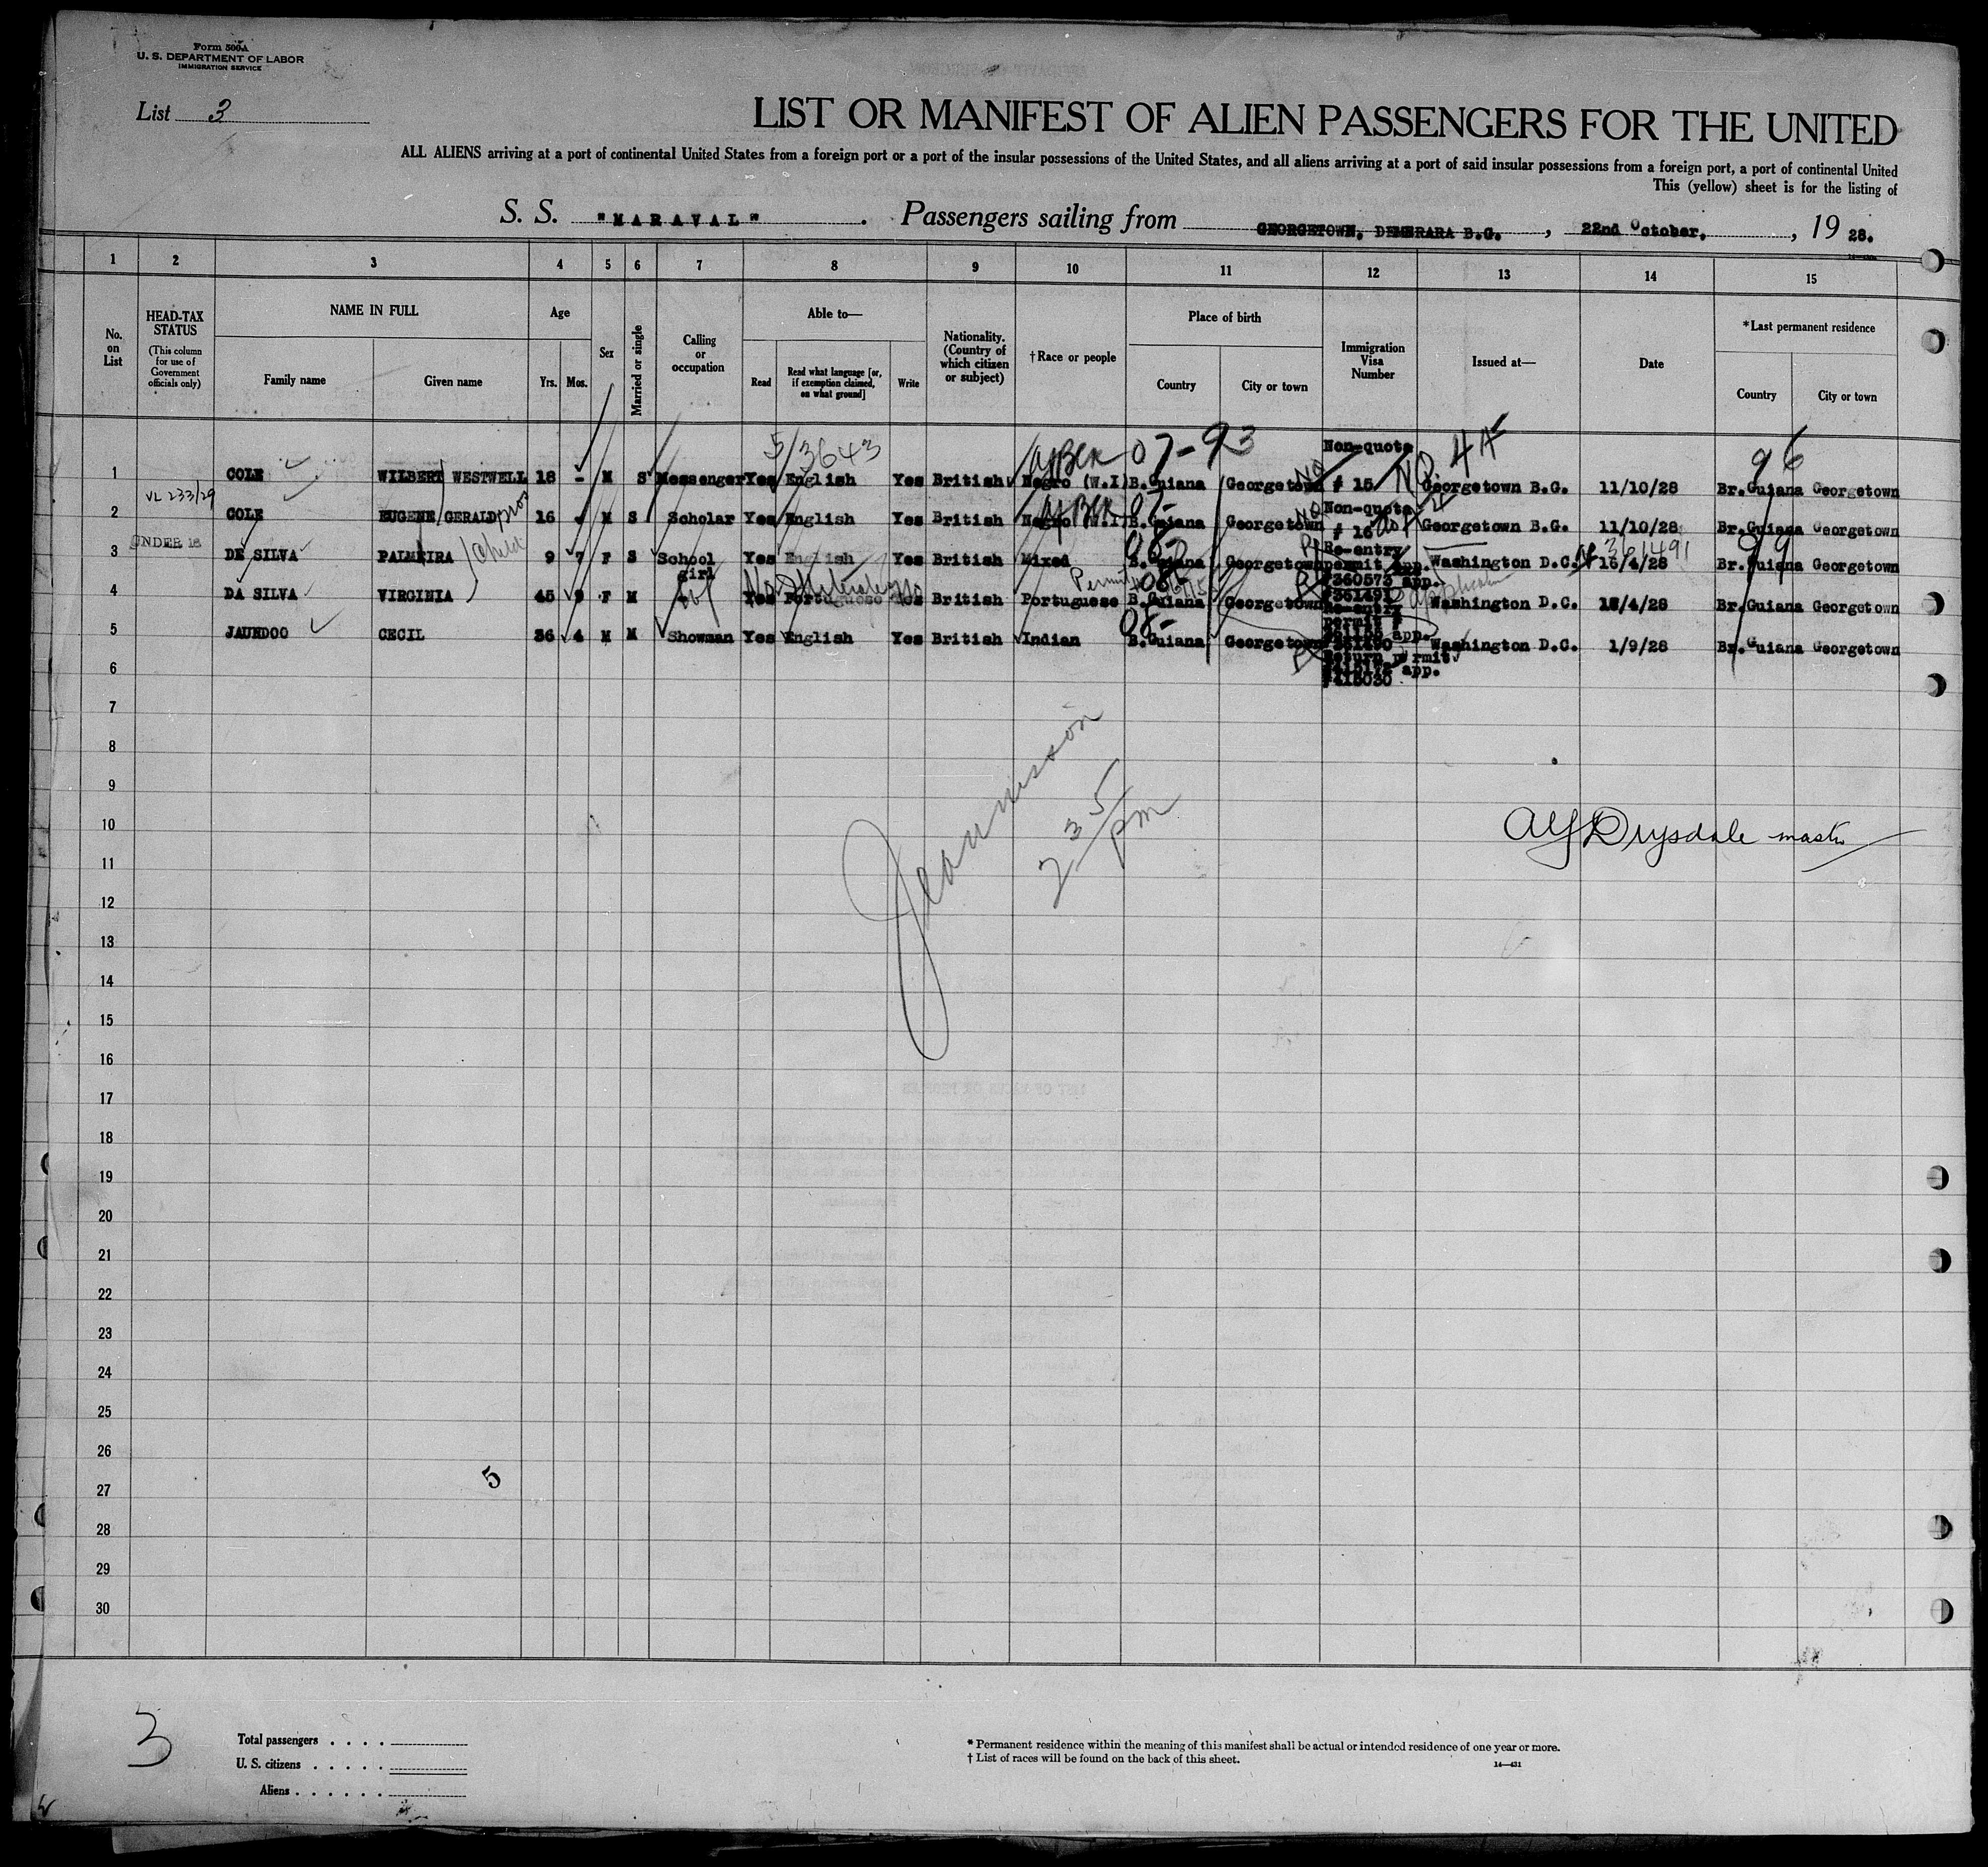 Form 500A
U. S. DEPARTMENT OF LABOR
IMMIGRATION SERVICE
List 3
LIST OR MANIFEST OF ALIEN PASSENGERS FOR THE UNITED
ALL ALIENS arriving at a port of continental United States from a foreign port or a port of the insular possessions of the United States, and all aliens arriving at a port of said insular possessions from a foreign port, a port of continental United
This (yellow) sheet is for the listing of
S. S. "MARAVAL". Passengers sailing from GEORGETOWN, DEMERARA B.G., 22nd October, 1928.
1 2 3 4 5 6 7 8 9 10 11 12 13 14 15
No. on List
HEAD-TAX STATUS
(This column for use of Government officials only)
NAME IN FULL
Family name Given name
Age
Yrs. Mos.
Sex
Married or single
Calling or occupation
Able to—
Read
Read what language [or, if exemption claimed, on what ground]
Write
Nationality. (Country of which citizen or subject)
†Race or people
Place of birth
Country City or town
Immigration Visa Number
Issued at—
Date
*Last permanent residence
Country City or town
5/3643 07-93 Non-quota 4A 96
1 COLE WILBERT WESTWELL 18 - M S Messenger Yes English Yes British Negro (W.I) B.Guiana Georgetown # 15 Georgetown B.G. 11/10/28 Br.Guiana Georgetown
VL 233/29
Non-quota
2 COLE EUGENE GERALD 16 M S Scholar Yes English Yes British Negro (W.I) B.Guiana Georgetown # 16 Georgetown B.G. 11/10/28 Br.Guiana Georgetown
UNDER 16 child Re-entry 361491
3 DE SILVA PALMEIRA 9 7 F S School girl Yes English Yes British Mixed B.Guiana Georgetown permit app. Washington D.C. 16/4/28 Br.Guiana Georgetown
#360573 app.
#361491
4 DA SILVA VIRGINIA 45 9 F M Yes Portuguese Yes British Portuguese B.Guiana Georgetown Re-entry Washington D.C. /4/28 Br.Guiana Georgetown
permit #
app.
5 JAUNDOO CECIL 36 4 M M Showman Yes English Yes British Indian B.Guiana Georgetown Washington D.C. 1/9/28 Br.Guiana Georgetown
Return permit
app.
6
7
8
9
10
11
12
13
14
15
16
17
18
19
20
21
22
23
24
25
26
27
28
29
30
2 35/pm
Drysdale master
5
3
Total passengers
U. S. citizens
Aliens
* Permanent residence within the meaning of this manifest shall be actual or intended residence of one year or more.
† List of races will be found on the back of this sheet.
14—431